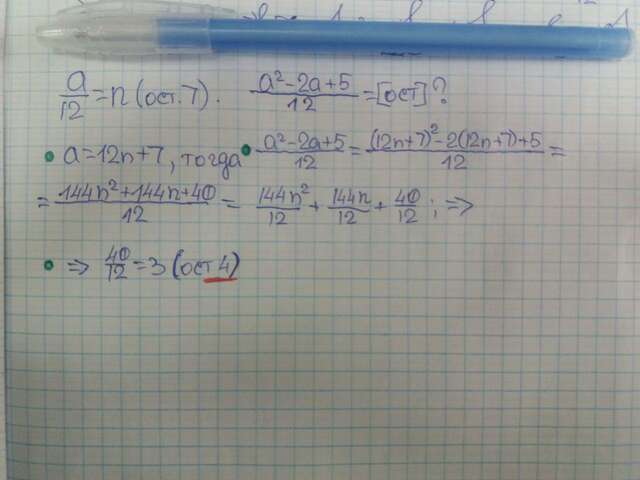 a/12 = n (ост. 7). (a²-2a+5)/12 = [ост]?
• a=12n+7, тогда • (a²-2a+5)/12 = ((12n+7)²-2(12n+7)+5)/12 =
= (144n²+144n+40)/12 = 144n²/12 + 144n/12 + 40/12 ; =>
• => 40/12 = 3 (ост 4)